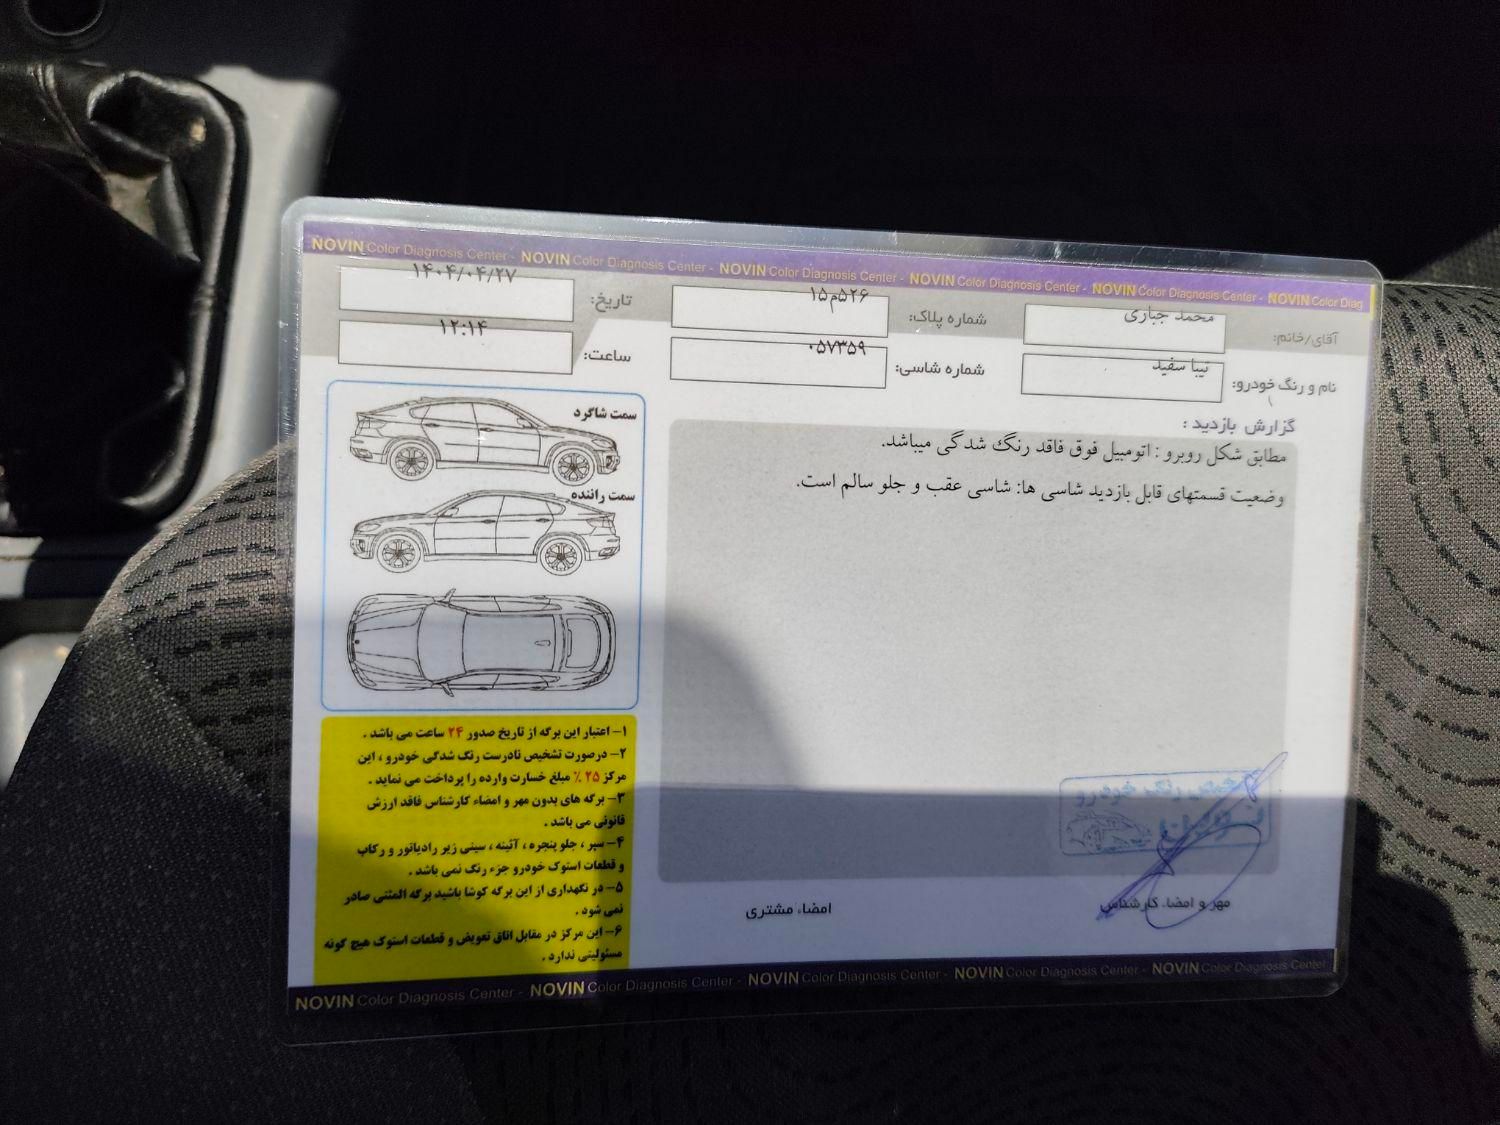 NOVIN Color Diagnosis Center - NOVIN Color Diagnosis Center - NOVIN Color Diagnosis Center - NOVIN Color Diagnosis Center - NOVIN Color Diagnosis Center - NOVIN Color Diag
آقای/خانم: محمد جباری
شماره پلاک: ۵۲۶م۱۵
تاریخ: ۱۴۰۴/۰۴/۲۷
نام و رنگ خودرو: تیبا سفید
شماره شاسی: ۰۵۷۳۵۹
ساعت: ۱۲:۱۴
گزارش بازدید :
مطابق شکل روبرو : اتومبیل فوق فاقد رنگ شدگی میباشد.
وضعیت قسمتهای قابل بازدید شاسی ها: شاسی عقب و جلو سالم است.
سمت شاگرد
سمت راننده
۱– اعتبار این برگه از تاریخ صدور ۲۴ ساعت می باشد .
۲– درصورت تشخیص نادرست رنگ شدگی خودرو ، این
مرکز ۲۵ ٪ مبلغ خسارت وارده را پرداخت می نماید .
۳– برگه های بدون مهر و امضاء کارشناس فاقد ارزش
قانونی می باشد .
۴– سپر ، جلو پنجره ، آئینه ، سینی زیر رادیاتور و رکاب
و قطعات استوک خودرو جزء رنگ نمی باشد .
۵– در نگهداری از این برگه کوشا باشید برگه المثنی صادر
نمی شود .
۶– این مرکز در مقابل اتاق تعویض و قطعات استوک هیچ گونه
مسئولیتی ندارد .
رنگ خودرو
مهر و امضاء کارشناس
امضاء مشتری
NOVIN Color Diagnosis Center - NOVIN Color Diagnosis Center - NOVIN Color Diagnosis Center - NOVIN Color Diagnosis Center - NOVIN Color Diagnosis Center